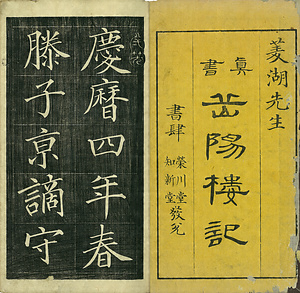 菱湖先生
真書
岳陽樓記
書肆
榮川堂
知新堂
發兌
慶曆四年春
滕子京謫守